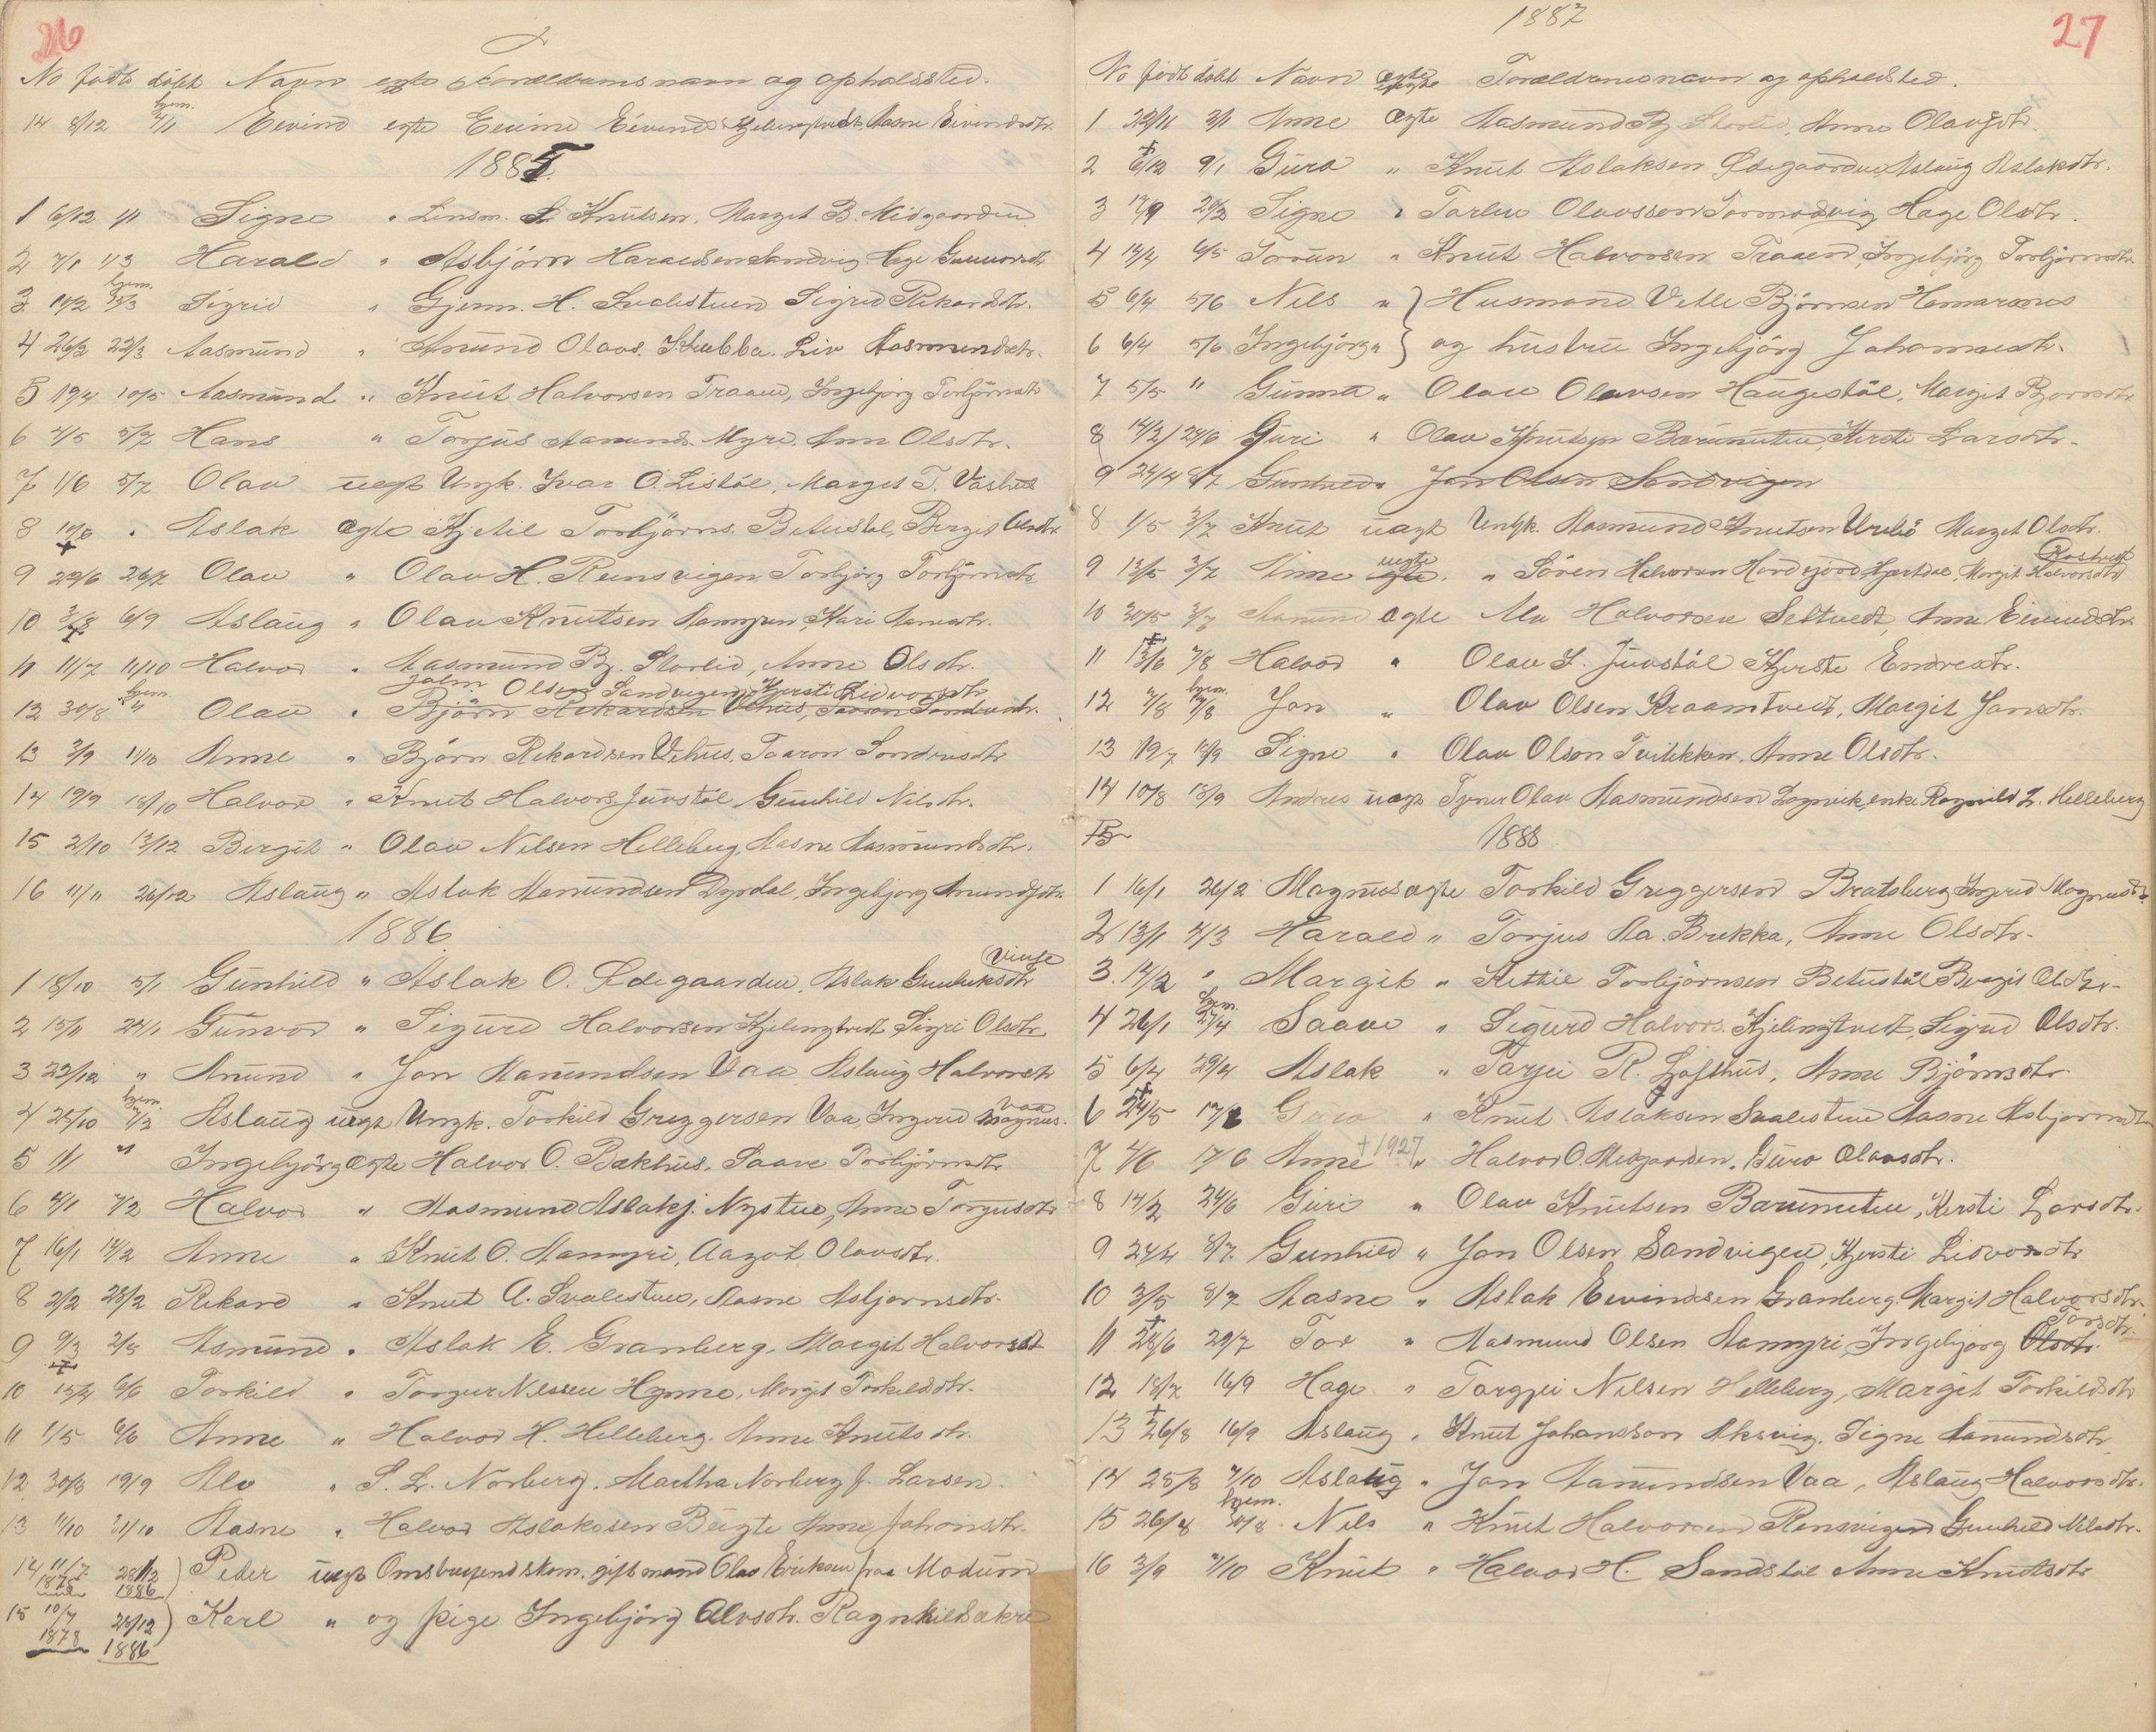 26
No födt döbt Navn egte Foreldrernes navn og opholdssted.
14 8/12 hjem. 4/1 Eivind egte Eivind Eivinds. Kjelingtvedt, Aasne Eivindsdtr.
1885.
1 6/12 1/1 Signe " Lensm. L. Knutsen, Marget B. Midgaarden
2 7/1 1/3 Harald " Asbjörn Haraldsen Sandvig Hege Gunnarsdtr
3 10/2 hjem. 15/3 Sigrid " Gjerm. H. Svalestuen Sigrid Rikardsdtr.
4 26/2 22/3 Aasmund " Anund Olavs. Skubba. Liv Aasmundsdtr.
5 19/4 10/5 Aasmund " Knut Halvorsen Traaen, Ingebjörg Torbjörnsdtr
6 4/5 5/7 Hans " Torjus Aamunds. Myri. Anne Olsdtr.
7 1/6 5/7 Olav uegt Ungk. Ivar O. Listöl, Marget T. Vashus
8 10/6 " Aslak egte Kjetil Torbjörns. Betustöl, Bergit Olsdtr
9 29/6 26/7 Olav " Olav H. Reinsvigen, Torbjörg Torbjörnsdtr
10 3/8 6/9 Aslaug " Olav Knutsen Aamyren, Kari
11 11/7 11/10 Halvor " Aasmund Bj. Storlid, Anne Olsdtr.
Jolm Olsen Sandvigen, Kjersti Lidvorsdtr
12 30/8 hjem. " Olav " Björn Rikardsen Vehus, Taaron Sondresdtr.
13 2/9 11/10 Anne " Björn Rikardsen Vehus, Taaron Sondresdtr
14 19/9 18/10 Halvor " Knut Halvors. Juvstöl Gunhild Nilsdtr.
15 2/10 13/12 Bergit " Olav Nilsen Helleberg, Aasne Aasmundsdtr.
16 11/11 26/12 Aslaug " Aslak Aanundsen Dyrdal, Ingebjorg Anundsdtr.
1886.
Vinje
1 18/10 5/1 Gunhild " Aslak O. Ödegaarden, Aslak Gunluksdtr
2 15/11 24/1 Gunvor " Sigurd Halvorsen Kjelingtvedt, Sigri Olsdtr.
3 22/12 " Anund " Jon Aanundsen Vaa Aslaug Halvorsdtr
4 25/10 hjem. 7/2 Aslaug uegt Ungk. Torkild Greggersen Vaa, Ingerid Magnus. Vaa
5 1/1 " Ingebjörg egte Halvor O. Bakhus, Saave Torbjörnsdtr
6 4/1 7/2 Halvor " Aasmund Aslakj. Nystue, Anne Torjusdtr
7 16/1 14/2 Anne " Knut O. Aamyri, Aagot Olavsdtr.
8 2/2 28/2 Rikard " Knut A. Svalestuen, Aasne Asbjornsdtr.
9 9/3 2/5 Asmund " Aslak E. Granberg, Margit Halvorsdt
10 15/4 6/6 Torkild " Torgeir Nilssen Hynne, Margit Torkildsdtr.
11 1/5 6/6 Anne " Halvor H. Helleberg. Anne Knutsdtr.
12 30/8 19/9 Alv " S. L. Norberg. Martha Norberg f. Larsen.
13 11/10 31/10 Aasne " Halvor Aslaksen Bugte Anne Johansdtr.
14 11/7 1875 28/12 1886 ) Peder uegt Omstreifend skom. gift mand Olav Eriksen fraa Modum
15 10/7 1878 28/12 1886 ) Karl " og pige Ingebjörg Alvsdtr. Ragnhildsakre
27
1887
No födt döbt Navn egte Foreldrenes navn og opholdsted.
1 22/11 2/1 Anne egte Aasmund Bj Storlid, Anne Olavsdtr.
2 6/12 9/1 Guro " Knut Aslaksen Ödegaarden, Aslaug Aslaksdtr.
3 17/9 20/2 Signe " Tarlev Olavssen Tormodsvig, Hage Olsdtr.
4 14/4 6/5 Torun " Knut Halvorsen Traaen, Ingebjörg Torbjörnsdtr
5 6/4 5/6 Nils " } Husmand Vetle Björnsen Hamaranes
6 6/4 5/6 Ingebjörg " } og hustru Ingebjörg Johannesdtr.
7 5/5 " Gunne " Olav Olavsen Haugestöl, Margit Bjornsdtr
8 14/2 24/6 Guri " Olav Knutsen Barunuten, Kersti Larsdtr.
9 24/4 8/7 Gunhild " Jon Olsen Sandvigen
8 1/5 3/7 Knut uegt Ungk. Aasmund Knutsen Urebö Marget Olsdtr.
9 13/5 3/7 Anne uegte " Sören Halvorsen Hardefjord Hjartdal, Margit Halvorsdtr
10 30/5 3/7 Aanund egte Alv Halvorsen Seltvedt, Anne Eivindsdtr
11 13/6 7/8 Halvor " Olav S. Juvstöl Kjerste Endresdtr.
12 7/8 hjem. 7/8 Jon " Olav Olsen Kraamtvedt, Margit Jonsdtr.
13 19/7 18/9 Signe " Olav Olsen Tvitekkan, Anne Olsdtr.
14 10/8 18/9 Andres uegt Tjener Olav Aasmundsen Lognvik, enke Ragnild L. Helleberg
15
1888
1 16/1 26/2 Magnus egte Torkild Greggersen Bratsberg Ingerid Magnusdtr.
2 13/1 4/3 Harald " Torjus Aa. Brekka, Anne Olsdtr.
3. 14/2 " Margit " Kettil Torbjörnsen Betustöl Bergit Olsdtr.
4 26/1 hjem. 27/4 Saave " Sigurd Halvors. Kjelingtvedt, Sigrid Olsdtr.
5 6/4 29/4 Aslak " Tarjei R. Lofthus, Anne Björnsdtr.
6 24/5 17/6 Guro " Knut Aslaksen Svalestuen Aasne Asbjornsdtr
7 4/6 17/6 Anne † 1927 " Halvor O. Midgaarden, Guro Olavsdtr.
8 14/2 24/6 Guri " Olav Knutsen Barunuten, Kersti Larsdtr.
9 24/4 8/7 Gunhild " Jon Olsen Sandvigen, Kjersti Lidvorsdtr
10 3/5 8/7 Aasne " Aslak Eivindsen Granberg. Margit Halvorsdtr.
11 28/6 29/7 Tor " Aasmund Olsen Aamyri, Ingebjorg Olsdtr. Torsdtr.
12 18/7 16/9 Hage " Targjei Nilsen Helleberg, Margit Torkildsdtr
13 26/8 16/9 Aslaug " Knut Johansson Aksvig. Signe Aanundsdtr
14 25/8 7/10 Aslaug " Jon Aanundsen Vaa, Aslaug Halvorsdtr.
15 26/8 hjem. 30/8 Nils " Knut Halvorsen Rensvigen Gunhild Nilsdtr.
16 3/9 7/10 Knut " Halvor H. Sandstöl Anne Knutsdtr